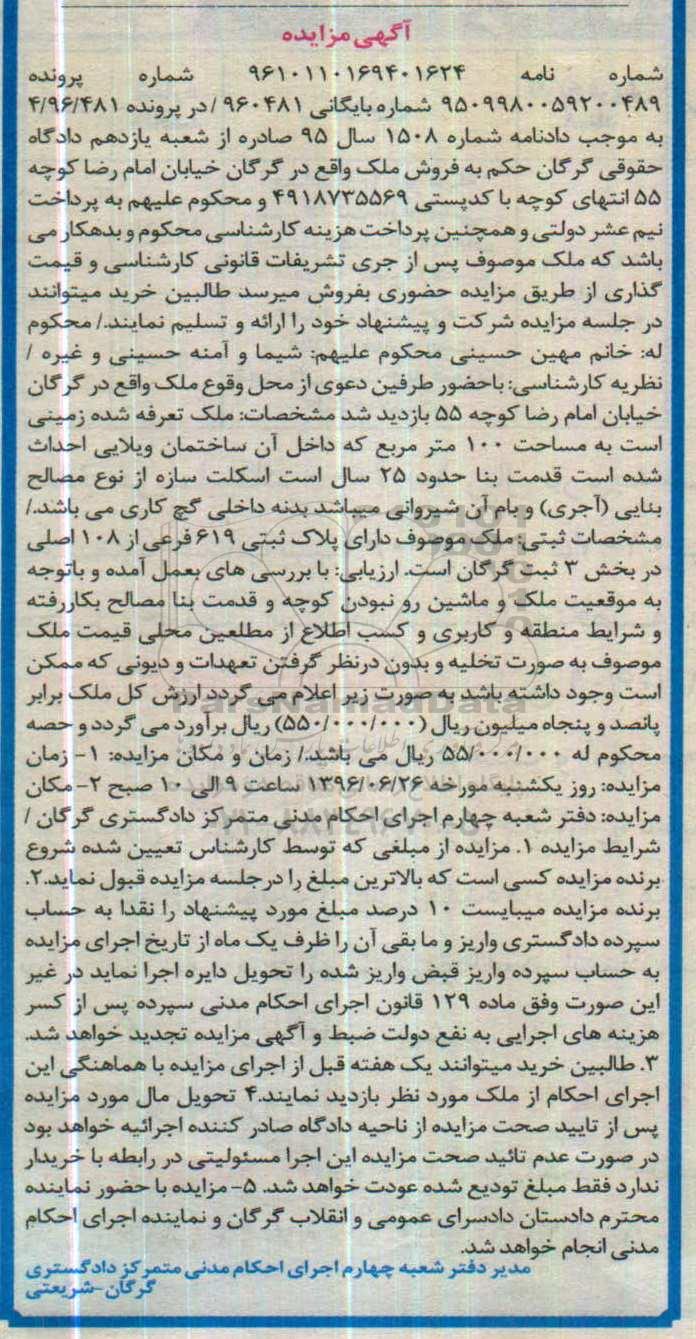 آگهی مزایده
شماره نامه ۹۶۱۰۱۱۰۱۶۹۴۰۱۶۲۴ شماره پرونده
۹۵۰۹۹۸۰۰۵۹۲۰۰۴۸۹ شماره بایگانی ۹۶۰۴۸۱ / در پرونده ۴/۹۶/۴۸۱
به موجب دادنامه شماره ۱۵۰۸ سال ۹۵ صادره از شعبه یازدهم دادگاه
حقوقی گرگان حکم به فروش ملک واقع در گرگان خیابان امام رضا کوچه
۵۵ انتهای کوچه با کدپستی ۴۹۱۸۷۳۵۵۶۹ و محکوم علیهم به پرداخت
نیم عشر دولتی و همچنین پرداخت هزینه کارشناسی محکوم و بدهکار می
باشد که ملک موصوف پس از جری تشریفات قانونی کارشناسی و قیمت
گذاری از طریق مزایده حضوری بفروش میرسد طالبین خرید میتوانند
در جلسه مزایده شرکت و پیشنهاد خود را ارائه و تسلیم نمایند./ محکوم
له: خانم مهین حسینی محکوم علیهم: شیما و آمنه حسینی و غیره /
نظریه کارشناسی: باحضور طرفین دعوی از محل وقوع ملک واقع در گرگان
خیابان امام رضا کوچه ۵۵ بازدید شد مشخصات: ملک تعرفه شده زمینی
است به مساحت ۱۰۰ متر مربع که داخل آن ساختمان ویلایی احداث
شده است قدمت بنا حدود ۲۵ سال است اسکلت سازه از نوع مصالح
بنایی (آجری) و بام آن شیروانی میباشد بدنه داخلی گچ کاری می باشد./
مشخصات ثبتی: ملک موصوف دارای پلاک ثبتی ۶۱۹ فرعی از ۱۰۸ اصلی
در بخش ۳ ثبت گرگان است. ارزیابی: با بررسی های بعمل آمده و باتوجه
به موقعیت ملک و ماشین رو نبودن کوچه و قدمت بنا مصالح بکاررفته
و شرایط منطقه و کاربری و کسب اطلاع از مطلعین محلی قیمت ملک
موصوف به صورت تخلیه و بدون درنظر گرفتن تعهدات و دیونی که ممکن
است وجود داشته باشد به صورت زیر اعلام می گردد ارزش کل ملک برابر
پانصد و پنجاه میلیون ریال (۵۵۰/۰۰۰/۰۰۰) ریال برآورد می گردد و حصه
محکوم له ۵۵/۰۰۰/۰۰۰ ریال می باشد./ زمان و مکان مزایده: ۱- زمان
مزایده: روز یکشنبه مورخه ۱۳۹۶/۰۶/۲۶ ساعت ۹ الی ۱۰ صبح ۲- مکان
مزایده: دفتر شعبه چهارم اجرای احکام مدنی متمرکز دادگستری گرگان /
شرایط مزایده ۱. مزایده از مبلغی که توسط کارشناس تعیین شده شروع
برنده مزایده کسی است که بالاترین مبلغ را در جلسه مزایده قبول نماید.۲.
برنده مزایده میبایست ۱۰ درصد مبلغ مورد پیشنهاد را نقدا به حساب
سپرده دادگستری واریز و ما بقی آن را ظرف یک ماه از تاریخ اجرای مزایده
به حساب سپرده واریز قبض واریز شده را تحویل دایره اجرا نماید در غیر
این صورت وفق ماده ۱۲۹ قانون اجرای احکام مدنی سپرده پس از کسر
هزینه های اجرایی به نفع دولت ضبط و آگهی مزایده تجدید خواهد شد.
۳. طالبین خرید میتوانند یک هفته قبل از اجرای مزایده با هماهنگی این
اجرای احکام از ملک مورد نظر بازدید نمایند.۴ تحویل مال مورد مزایده
پس از تایید صحت مزایده از ناحیه دادگاه صادر کننده اجرائیه خواهد بود
در صورت عدم تائید صحت مزایده این اجرا مسئولیتی در رابطه با خریدار
ندارد فقط مبلغ تودیع شده عودت خواهد شد. ۵- مزایده با حضور نماینده
محترم دادستان دادسرای عمومی و انقلاب گرگان و نماینده اجرای احکام
مدنی انجام خواهد شد.
مدیر دفتر شعبه چهارم اجرای احکام مدنی متمرکز دادگستری
گرگان-شریعتی
ParsNamadData